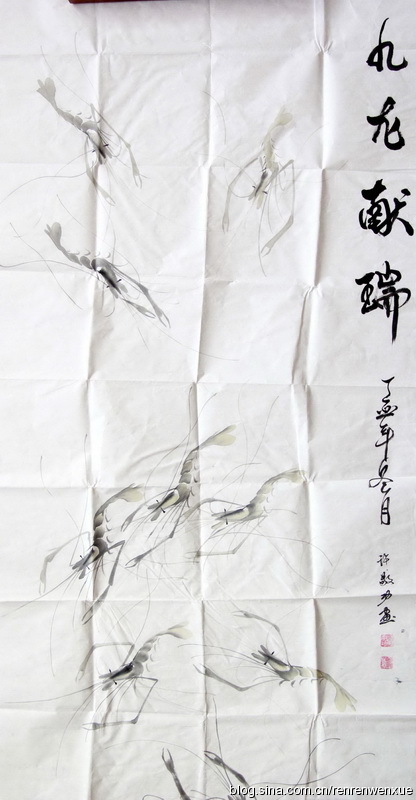 九龙献瑞
丁亥年冬月
许
画
blog.sina.com.cn/renrenwenxue